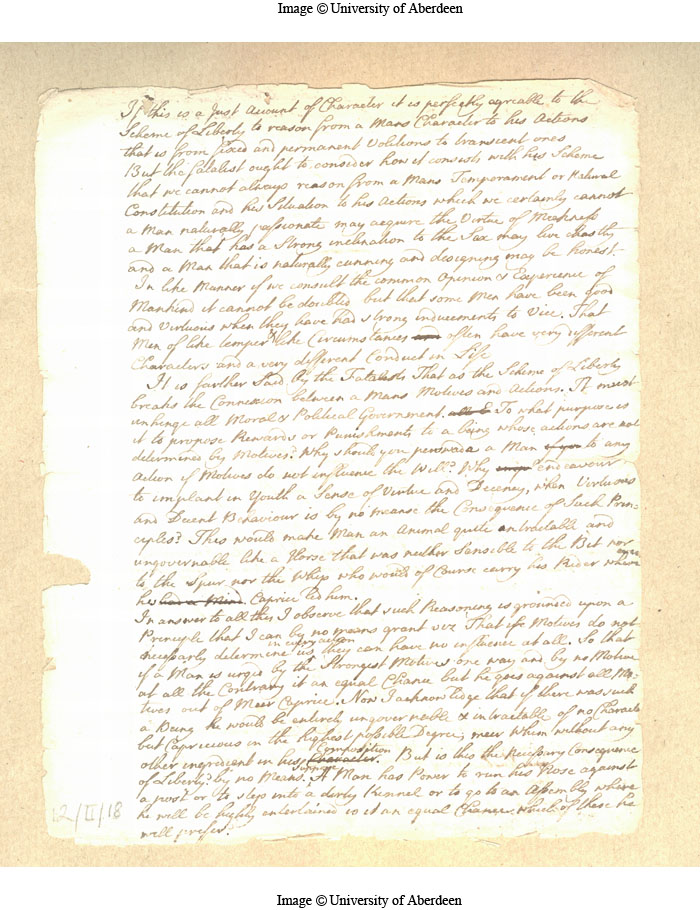 Image © University of Aberdeen
If this is a Just Account of Character it is perfectly agreable to the
Scheme of Liberty to reason from a Mans Character to his Actions
that is from fixed and permanent Volitions to transient ones
But the fatalist ought to consider how it consists with his Scheme
that we cannot always reason from a Mans Temperament or Natural
Constitution and his Situation to his Actions which we certainly cannot
a Man naturally passionate may acquire the Virtue of Meekness
a Man that has a Strong inclination to the Sex may live chastly
and a Man that is naturally cunning and designing may be honest.
In like Manner if we consult the common Opinion & Experience of
Mankind it cannot be doubted but that some Men have been good
and Virtuous when they have had strong inducements to Vice. That
Men of like temper & like Circumstances and often have very different
Characters and a very different Conduct in Life
It is farther Said By the Fatalists That as the Scheme of Liberty
breaks the Connexion between a Mans Motives and Actions. It must
unhinge all Moral & Political Government. To what purpose is
it to propose Rewards or Punishments to a being whose actions are not
determined by Motives? Why should you perswade a Man if you to any
Action if Motives do not influence the Will? Why endeavour
to implant in Youth a Sense of Virtue and Decency, when Virtuous
and Decent Behaviour is by no meanse the Consequence of Such Prin-
ciples? This would make Man an Animal quite untractable and
ungovernable like a Horse that was neither Sensible to the Bit nor
to the Spur nor the Whip who would of Course carry his Rider where
he had a Mind Caprice led him.
In answer to all this I observe that such Reasoning is grounded upon a
Principle that I can by no means grant viz That if Motives do not
necessarly determine us in every action they can have no influence at all. So that
if a Man is urged by the Strongest Motives one way and by no Motive
at all the Contrary it an equal Chance but he goes against all Mo-
tives out of Meer Caprice. Now I acknowledge that if there was such
a Being he would be entirely ungovernable & intractable of no Character
but Capricious in the highest possible Degree, meer Whim without any
other ingredient in his Character. Composition But is this the Necessary Consequence
of Liberty? by no Means. Suppose A Man has Power to run his Nose against
a post or to step into a durty Kennel or to go to an Assembly where
he will be highly entertained is it an equal Chance which of these he
will prefer.
12/II/18
Image © University of Aberdeen